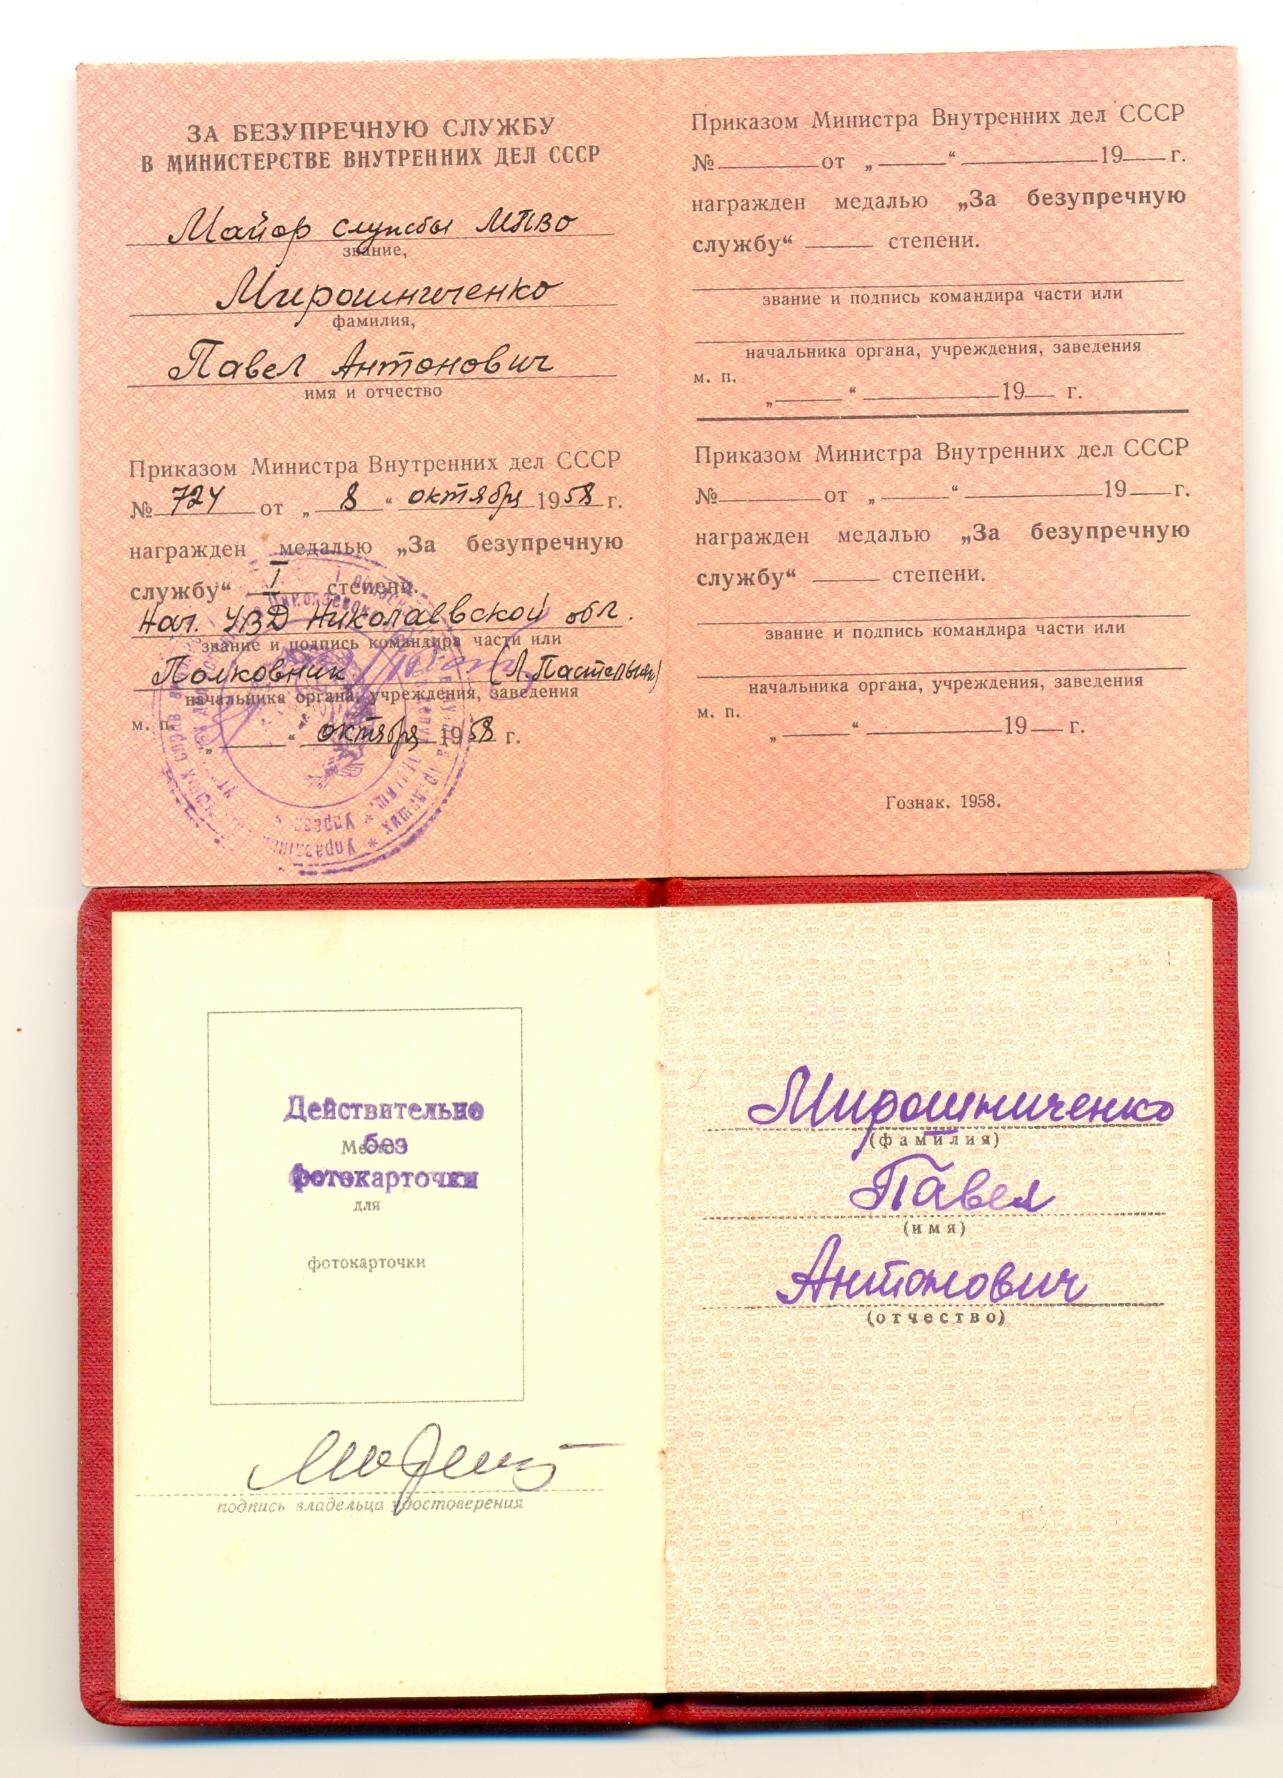 ЗА БЕЗУПРЕЧНУЮ СЛУЖБУ
В МИНИСТЕРСТВЕ ВНУТРЕННИХ ДЕЛ СССР
Майор службы МПВО
звание,
Мирошниченко
фамилия,
Павел Антонович
имя и отчество
Приказом Министра Внутренних дел СССР
№ 724 от „ 8 “ октября 1958 г.
награжден медалью „За безупречную
службу“ I степени.
Нач. УВД Николаевской обл.
звание и подпись командира части или
Полковник
начальника органа, учреждения, заведения
м. п.
„ “ октября 1958 г.
Приказом Министра Внутренних дел СССР
№ от „ “ 19 г.
награжден медалью „За безупречную
службу“ степени.
звание и подпись командира части или
начальника органа, учреждения, заведения
м. п.
„ “ 19 г.
Приказом Министра Внутренних дел СССР
№ от „ “ 19 г.
награжден медалью „За безупречную
службу“ степени.
звание и подпись командира части или
начальника органа, учреждения, заведения
м. п.
„ “ 19 г.
Гознак. 1958.
Действительно
без
фотокарточки
для
фотокарточки
подпись владельца удостоверения
Мирошниченко
(фамилия)
Павел
(имя)
Антонович
(отчество)